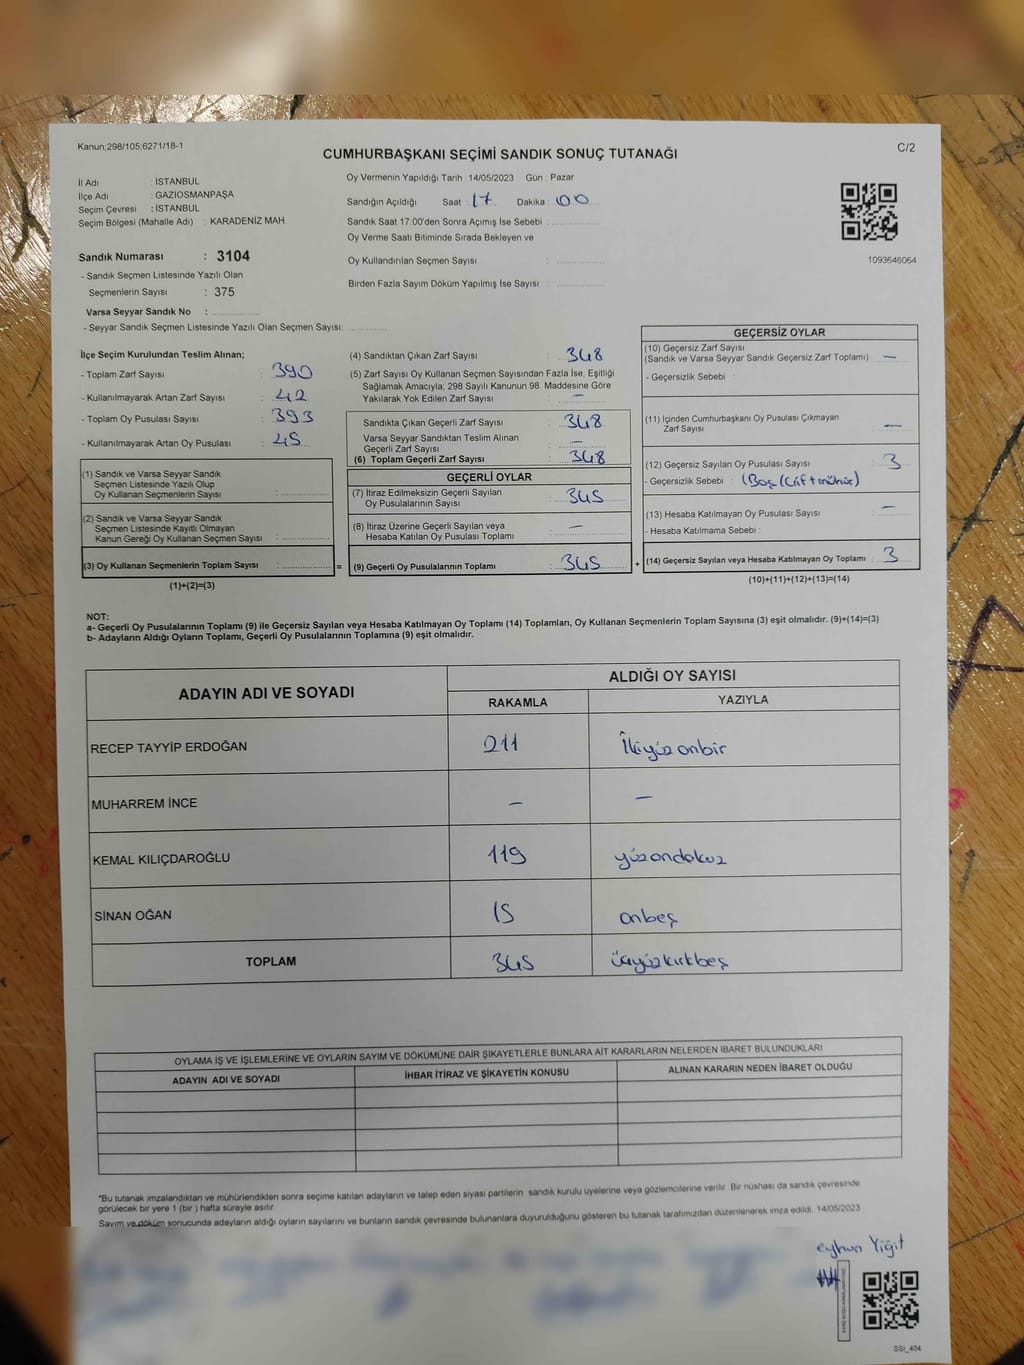 Kanun;298/105;6271/18-1
C/2
CUMHURBAŞKANI SEÇİMİ SANDIK SONUÇ TUTANAĞI
İl Adı : İSTANBUL
İlçe Adı : GAZİOSMANPAŞA
Seçim Çevresi : İSTANBUL
Seçim Bölgesi (Mahalle Adı) : KARADENİZ MAH.
Sandık Numarası : 3104
- Sandık Seçmen Listesinde Yazılı Olan
Seçmenlerin Sayısı : 375
Varsa Seyyar Sandık No :
- Seyyar Sandık Seçmen Listesinde Yazılı Olan Seçmen Sayısı:
Oy Vermenin Yapıldığı Tarih : 14/05/2023 Gün : Pazar
Sandığın Açıldığı Saat : 17 Dakika : 00
Sandık Saat 17:00'den Sonra Açımış İse Sebebi :
Oy Verme Saati Bitiminde Sırada Bekleyen ve
Oy Kullandırılan Seçmen Sayısı :
Birden Fazla Sayım Döküm Yapılmış İse Sayısı :
1093646064
İlçe Seçim Kurulundan Teslim Alınan;
- Toplam Zarf Sayısı : 390
- Kullanılmayarak Artan Zarf Sayısı : 42
- Toplam Oy Pusulası Sayısı : 393
- Kullanılmayarak Artan Oy Pusulası : 45
(1) Sandık ve Varsa Seyyar Sandık
Seçmen Listesinde Yazılı Olup
Oy Kullanan Seçmenlerin Sayısı :
(2) Sandık ve Varsa Seyyar Sandık
Seçmen Listesinde Kayıtlı Olmayan
Kanun Gereği Oy Kullanan Seçmen Sayısı :
(3) Oy Kullanan Seçmenlerin Toplam Sayısı : =
(1)+(2)=(3)
(4) Sandıktan Çıkan Zarf Sayısı : 348
(5) Zarf Sayısı Oy Kullanan Seçmen Sayısından Fazla İse, Eşitliği
Sağlamak Amacıyla; 298 Sayılı Kanunun 98. Maddesine Göre
Yakılarak Yok Edilen Zarf Sayısı : –
Sandıkta Çıkan Geçerli Zarf Sayısı : 348
Varsa Seyyar Sandıktan Teslim Alınan
Geçerli Zarf Sayısı : –
(6) Toplam Geçerli Zarf Sayısı : 348
GEÇERLİ OYLAR
(7) İtiraz Edilmeksizin Geçerli Sayılan
Oy Pusulalarının Sayısı : 345
(8) İtiraz Üzerine Geçerli Sayılan veya
Hesaba Katılan Oy Pusulası Toplamı : –
(9) Geçerli Oy Pusulalarının Toplamı : 345 +
GEÇERSİZ OYLAR
(10) Geçersiz Zarf Sayısı
(Sandık ve Varsa Seyyar Sandık Geçersiz Zarf Toplamı) : –
- Geçersizlik Sebebi :
(11) İçinden Cumhurbaşkanı Oy Pusulası Çıkmayan
Zarf Sayısı : –
(12) Geçersiz Sayılan Oy Pusulası Sayısı : 3
- Geçersizlik Sebebi : (Boş (Çift mühür)
(13) Hesaba Katılmayan Oy Pusulası Sayısı : –
- Hesaba Katılmama Sebebi :
(14) Geçersiz Sayılan veya Hesaba Katılmayan Oy Toplamı : 3
(10)+(11)+(12)+(13)=(14)
NOT:
a- Geçerli Oy Pusulalarının Toplamı (9) ile Geçersiz Sayılan veya Hesaba Katılmayan Oy Toplamı (14) Toplamları, Oy Kullanan Seçmenlerin Toplam Sayısına (3) eşit olmalıdır. (9)+(14)=(3)
b- Adayların Aldığı Oyların Toplamı, Geçerli Oy Pusulalarının Toplamına (9) eşit olmalıdır.
ADAYIN ADI VE SOYADI
ALDIĞI OY SAYISI
RAKAMLA YAZIYLA
RECEP TAYYİP ERDOĞAN 211 İkiyüz onbir
MUHARREM İNCE – –
KEMAL KILIÇDAROĞLU 119 yüzondokuz
SİNAN OĞAN 15 onbeş
TOPLAM 345 üçyüzkırkbeş
OYLAMA İŞ VE İŞLEMLERİNE VE OYLARIN SAYIM VE DÖKÜMÜNE DAİR ŞİKAYETLERLE BUNLARA AİT KARARLARIN NELERDEN İBARET BULUNDUKLARI
ADAYIN ADI VE SOYADI İHBAR İTİRAZ VE ŞİKAYETİN KONUSU ALINAN KARARIN NEDEN İBARET OLDUĞU
*Bu tutanak imzalandıktan ve mühürlendikten sonra seçime katılan adayların ve talep eden siyasi partilerin sandık kurulu üyelerine veya gözlemcilerine verilir. Bir nüshası da sandık çevresinde
görülecek bir yere 1 (bir) hafta süreyle asılır.
Sayım ve döküm sonucunda adayların aldığı oyların sayılarını ve bunların sandık çevresinde bulunanlara duyurulduğunu gösteren bu tutanak tarafımızdan düzenlenerek imza edildi. 14/05/2023
eyhun Yiğit
SSI_404